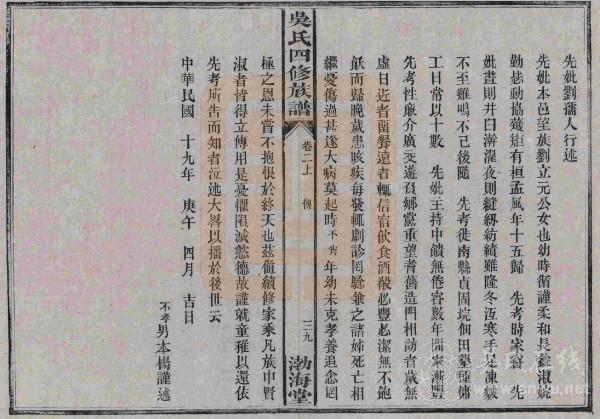 先妣劉孺人行述
先妣本邑望族劉立元公女也幼時循謹柔和長益淑婉
勤慈動協矩有桓孟風年十五歸 先考時家窘 先
妣晝則井臼澣濯夜則縫紉紡績雖隆冬沍寒手足凍皴
不至雞鳴不已後隨 先考徙南縣貞固垸佃田墾種傭
工日常以十數 先妣主持中饋無倦容數年間家漸豐
先考性廉介廣交遊負鄉黨重望耆舊造門相訪者歲無
虛日近者留餐遠者輒信宿飲食酒殽必豐必潔無不飽
飫而歸晚歲患咳疾每發輒劇診罔驗兼之諸姊死亡相
繼憂傷過甚遂大病莫起時不肖年幼未克孝養追念罔
吳氏四修族譜
卷二上 傳
三九
渤海堂
極之恩未嘗不抱恨於終天也茲值續修家乘凡族中賢
淑者皆得立傳用是憂懼隕滅懿德故謹就童稚以還依
先考所告而知者泣述大畧以播於後世云
中華民國 十九年 庚午 四月 吉日
不孝男本楊謹述